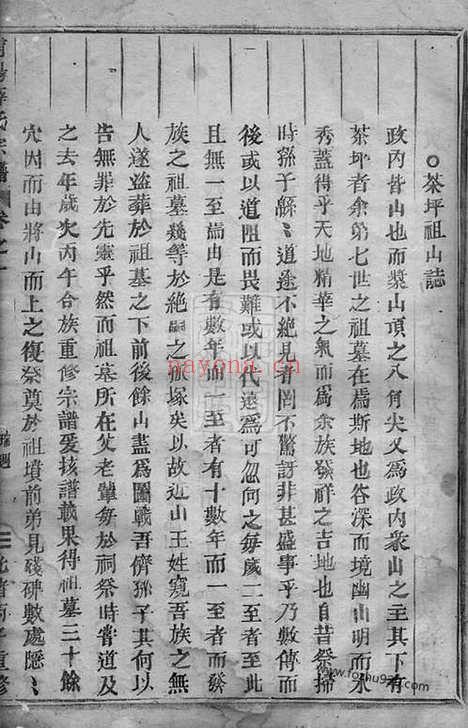 ○茶坪祖山誌
政內皆山也而漿山頂之八角尖又爲政內衆山之主其下有
茶坪者余第七世之祖墓在焉斯地也谷深而境幽山明而水
秀蓋得乎天地精華之氣而爲余族發祥之吉地也自昔祭掃
時孫子緜〻道途不絕見者罔不驚訝非甚盛事乎乃數傳而
後或以道阻而畏難或以代遠爲可忽向之每歲二至者至此
且無一至焉由是有數年而一至者有十數年而一至者以吾
族之祖墓幾等於絕嗣之孤塚矣以故近山王姓窺吾族之無
人遂盜葬於祖墓之下前後餘山盡爲圖戤吾儕孫子其何以
告無罪於先靈乎然而祖墓所在父老輩每於祠祭時嘗道及
之去年歲次丙午合族重修宗譜爰核譜載果得祖墓三十餘
穴因而由將山而上之復祭奠於祖墳前弟見殘碑數處隱〻
氏宗譜
卷之一
重修
nayona.cn